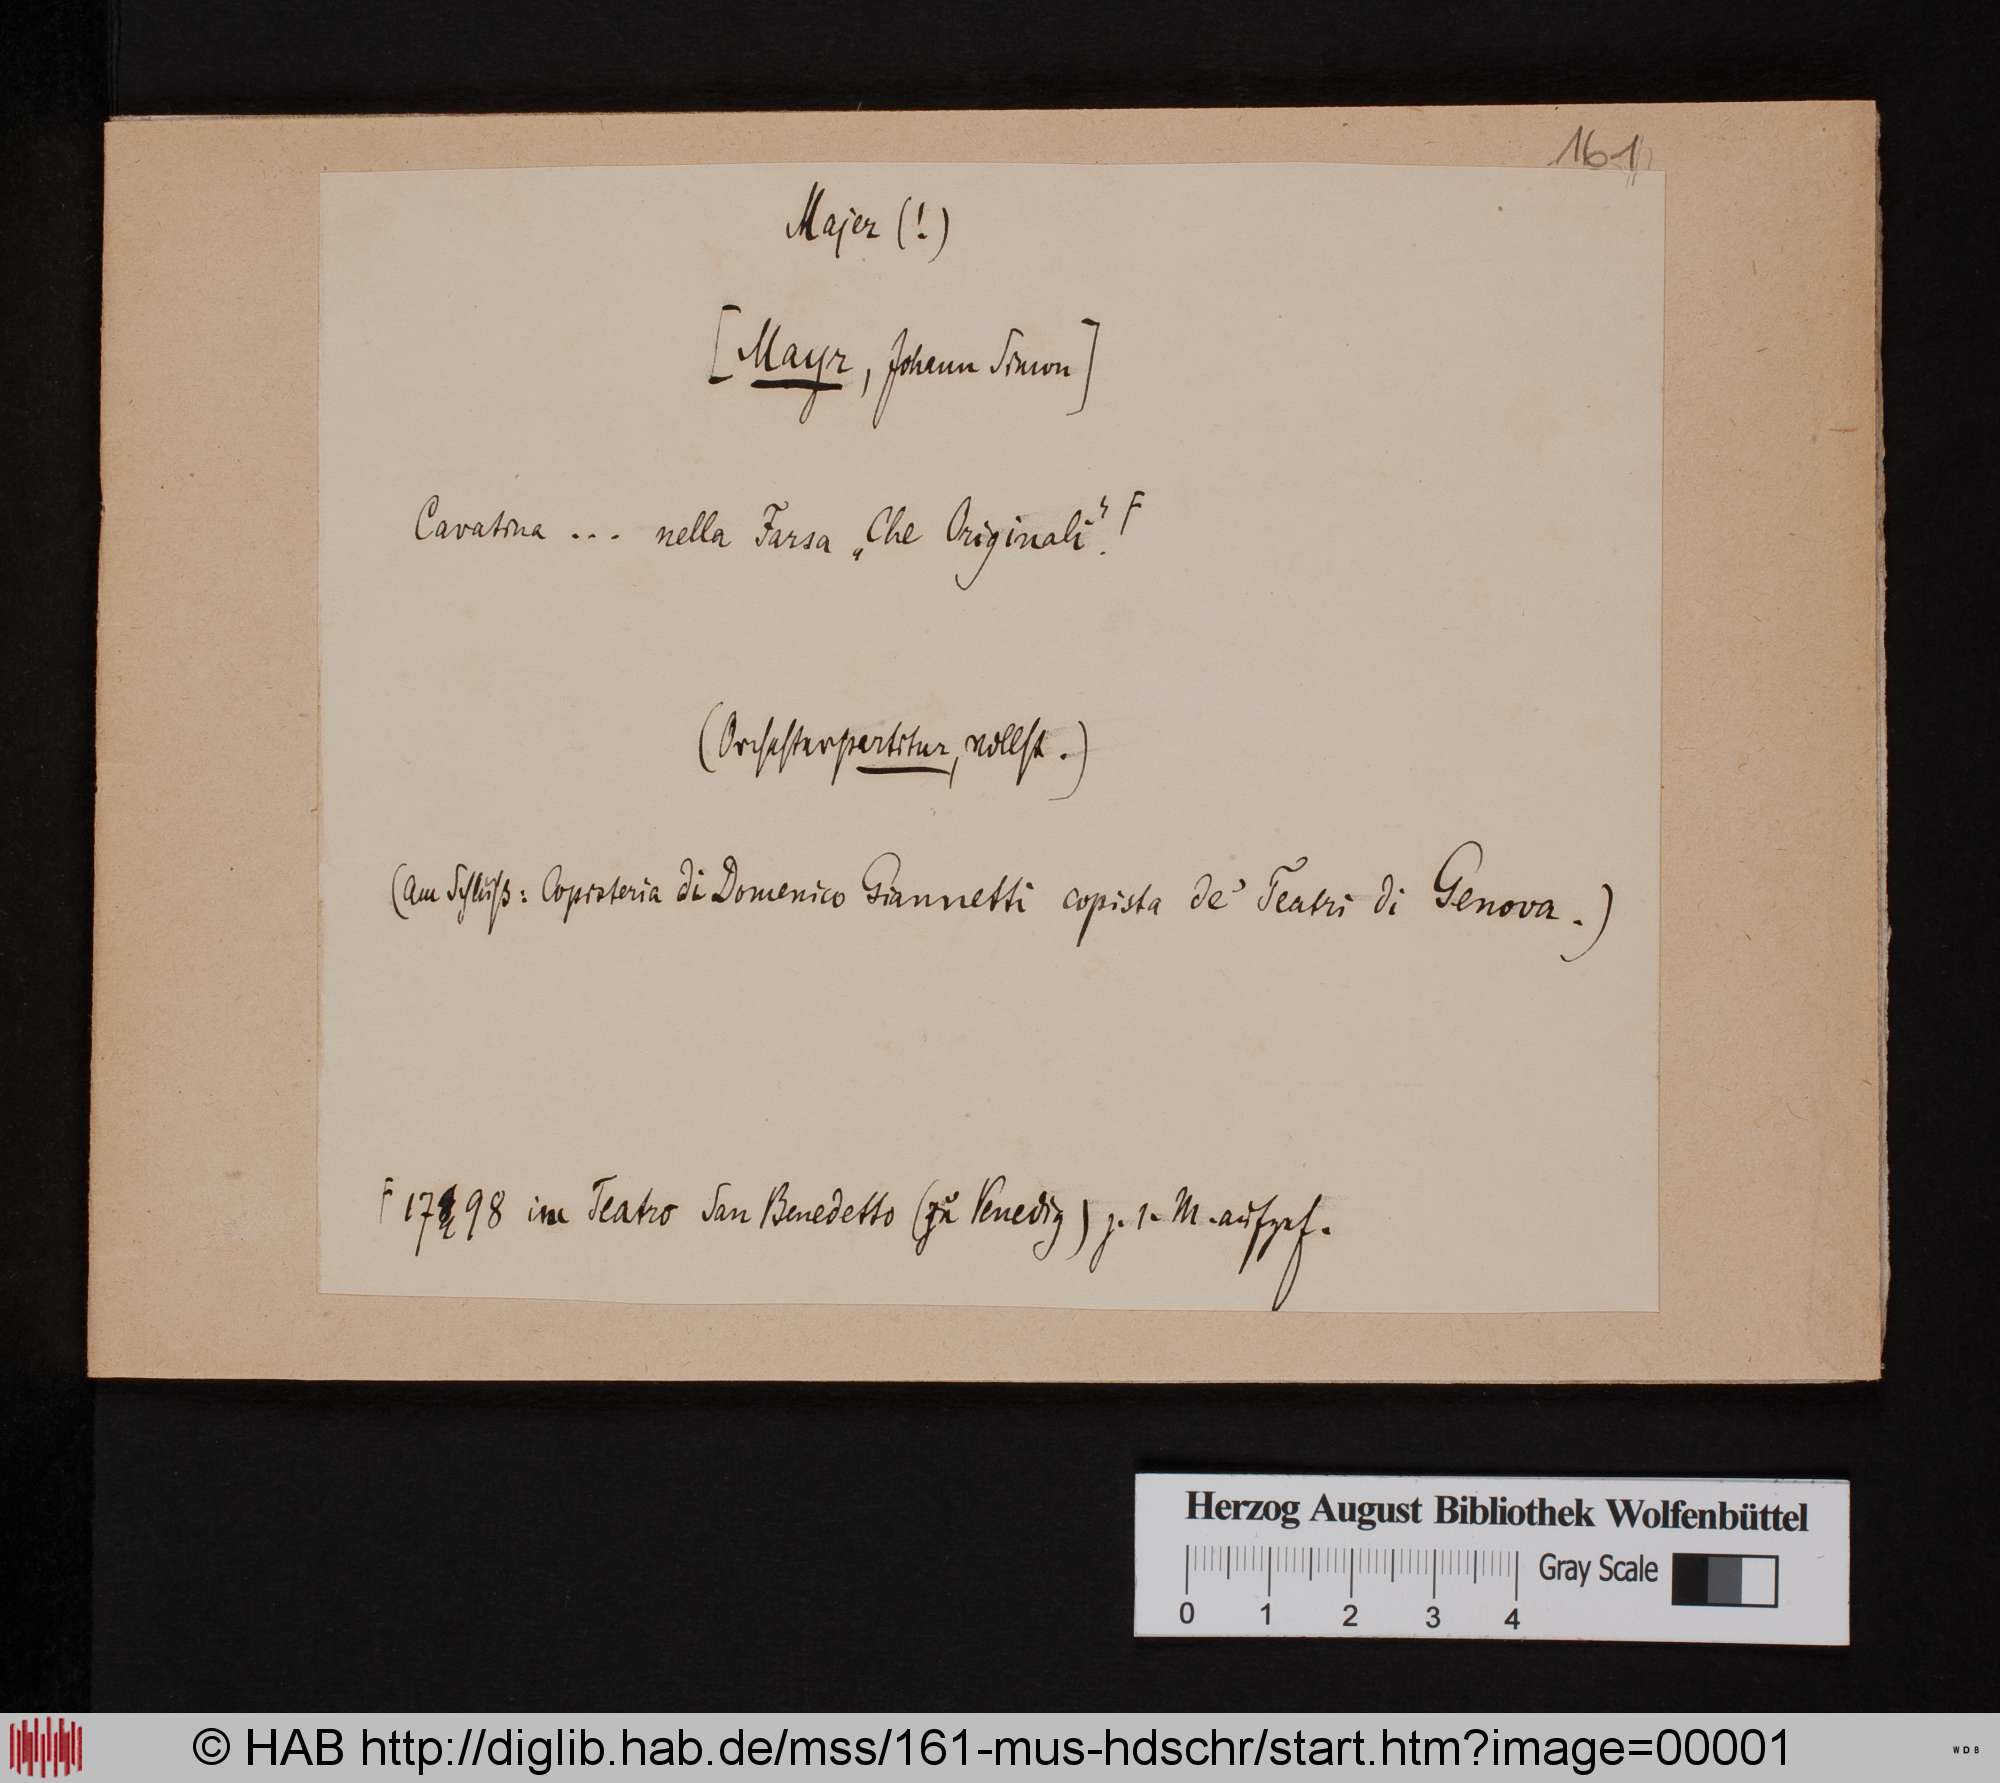 161
Majer (!)
[Mayr, Johann Simon]
Cavatina ... nella Farsa „Che Originali“. F
(Orchesterpartitur, vollst.)
(Am Schluß: Copisteria di Domenico Giannetti copista de' Teatri di Genova.)
F 1798 im Teatro San Benedetto (zu Venedig) z. 1. M. aufgef.
Herzog August Bibliothek Wolfenbüttel
Gray Scale
0 1 2 3 4
© HAB http://diglib.hab.de/mss/161-mus-hdschr/start.htm?image=00001
WDB